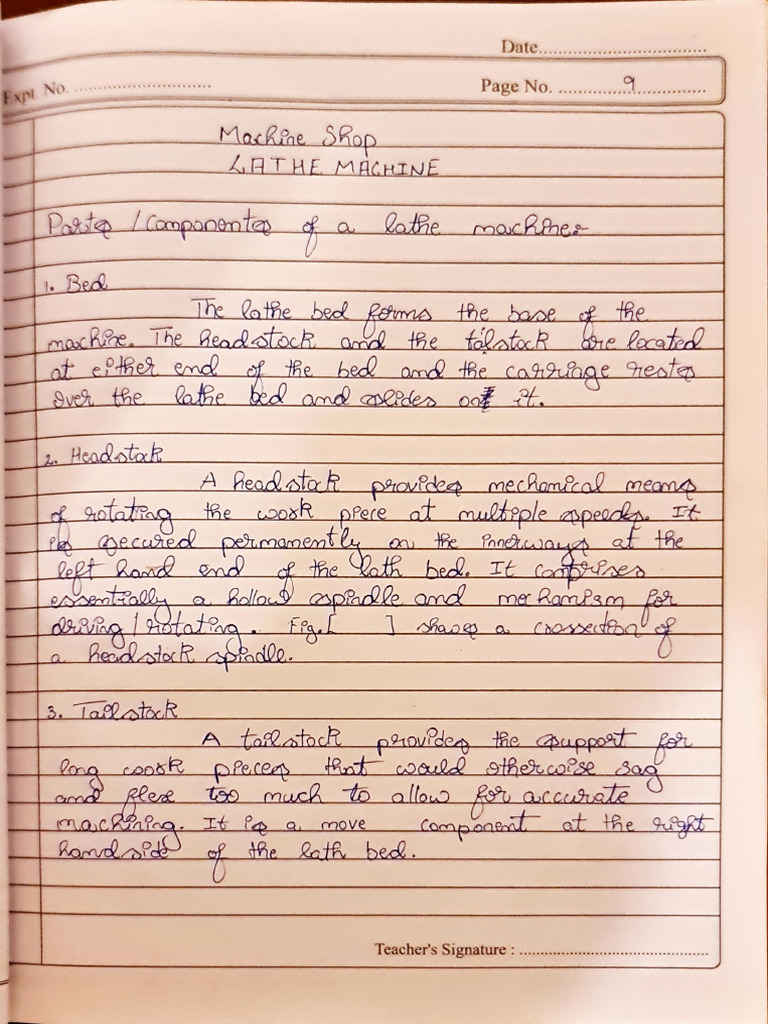 Date
Expt. No.
Page No. 9
Machine Shop
LATHE MACHINE
Parts / Components of a lathe machine:-
1. Bed
The lathe bed forms the base of the
machine. The headstock and the tailstock are located
at either end of the bed and the carringe rests
over the lathe bed and slides on it.
2. Headstock
A headstock provides mechanical means
of rotating the work piece at multiple speeds. It
is secured permamently on the innerways at the
left hand end of the lath bed. It comprises
essentially a hollow spindle and mechanism for
driving / rotating. Fig. [ ] shows a crossection of
a headstock spindle.
3. Tailstock
A tailstock provides the support for
long work pieces that would otherwise sag
and flex too much to allow for accurate
machining. It is a move component at the right
handside of the lath bed.
Teacher's Signature :